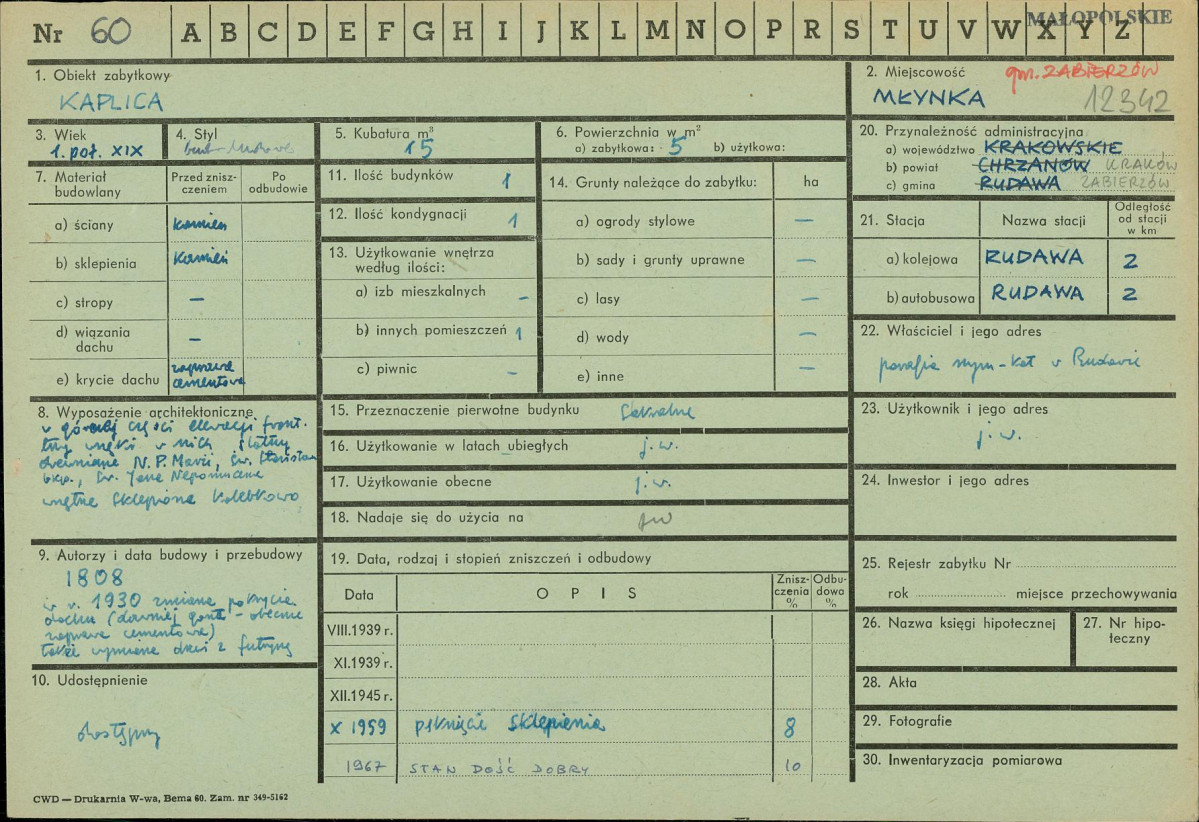 Nr 60 A B C D E F G H I J K L M N O P R S T U V W X Y Z
MAŁOPOLSKIE
1. Obiekt zabytkowy
KAPLICA
2. Miejscowość gm. ZABIERZÓW
MŁYNKA 12342
3. Wiek
1. poł. XIX
4. Styl
5. Kubatura m³
15
6. Powierzchnia w m²
a) zabytkowa: 5 b) użytkowa:
20. Przynależność administracyjna
a) województwo KRAKOWSKIE
b) powiat CHRZANÓW KRAKÓW
c) gmina RUDAWA ZABIERZÓW
7. Materiał budowlany
Przed znisz-
czeniem
Po
odbudowie
a) ściany kamień
b) sklepienia kamień
c) stropy –
d) wiązania
dachu –
e) krycie dachu zaprawa
cementowa
11. Ilość budynków 1
12. Ilość kondygnacji 1
13. Użytkowanie wnętrza
według ilości:
a) izb mieszkalnych –
b) innych pomieszczeń 1
c) piwnic –
14. Grunty należące do zabytku: ha
a) ogrody stylowe –
b) sady i grunty uprawne –
c) lasy –
d) wody –
e) inne –
21. Stacja Nazwa stacji Odległość
od stacji
w km
a) kolejowa RUDAWA 2
b) autobusowa RUDAWA 2
22. Właściciel i jego adres
parafia rzym-kat w Rudawie
8. Wyposażenie architektoniczne
w górnej części elewacji front.
trzy wnęki w nich statuy
drewniane N.P. Marii, św. Stanisław
bkp., św. Jana Nepomucena
wnętrze sklepione kolebkowo
15. Przeznaczenie pierwotne budynku sakralne
16. Użytkowanie w latach ubiegłych j.w.
17. Użytkowanie obecne j.w.
18. Nadaje się do użycia na jw
23. Użytkownik i jego adres
j.w.
24. Inwestor i jego adres
9. Autorzy i data budowy i przebudowy
1808
w r. 1930 zmiana pokrycia
dachu (dawniej gont - obecnie
zaprawa cementowa)
także wymiana drzwi z futryną
10. Udostępnienie
dostępny
19. Data, rodzaj i stopień zniszczeń i odbudowy
Data OPIS Znisz-
czenia
% Odbu-
dowa
%
VIII.1939 r.
XI.1939 r.
XII.1945 r.
X 1959 pęknięcie sklepienia 8
1967 STAN DOŚĆ DOBRY 10
25. Rejestr zabytku Nr
rok miejsce przechowywania
26. Nazwa księgi hipotecznej
27. Nr hipo-
teczny
28. Akta
29. Fotografie
30. Inwentaryzacja pomiarowa
CWD — Drukarnia W-wa, Bema 60. Zam. nr 349-5162